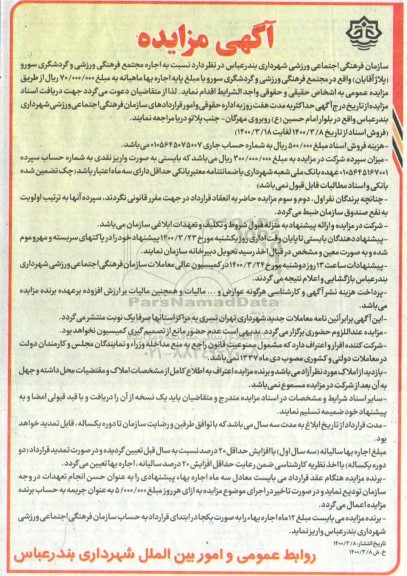 آگهی مزایده
سازمان فرهنگی اجتماعی ورزشی شهرداری بندرعباس در نظر دارد نسبت به اجاره مجتمع فرهنگی ورزشی و گردشگری سورو
(پلاژ آقایان) واقع در مجتمع فرهنگی ورزشی و گردشگری سورو با مبلغ پایه اجاره بها ماهیانه به مبلغ ۷۰/۰۰۰/۰۰۰ ریال از طریق
مزایده عمومی به اشخاص حقیقی و حقوقی واجد الشرایط اقدام نماید. لذا از متقاضیان دعوت می گردد جهت دریافت اسناد
مزایده از تاریخ درج آگهی حداکثر به مدت هفت روز به اداره حقوقی و امور قراردادهای سازمان فرهنگی اجتماعی ورزشی شهرداری
بندرعباس واقع در بلوار امام حسین (ع) روبروی مهرگان - جنب پلاتو دریا مراجعه نمایند.
(فروش اسناد از تاریخ ۱۴۰۰/۳/۸ لغایت ۱۴۰۰/۳/۱۸)
- هزینه فروش اسناد مبلغ ۵۰۰/۰۰۰ ریال به شماره حساب جاری ۰۱۰۵۶۴۵۰۷۵۰۰۷ می باشد.
- میزان سپرده شرکت در مزایده به مبلغ ۳۰۰/۰۰۰/۰۰۰ ریال می باشد که بایستی به صورت واریز نقدی به شماره حساب سپرده
۰۱۰۵۶۴۵۱۶۷۰۰۱ عهده بانک ملی شعبه شهرداری یا ضمانتنامه معتبر بانکی حداقل دارای سه ماه اعتبار باشد (چک تضمین شده
بانکی و اسناد مطالبات قابل قبول نمی باشد)
- چنانچه برندگان نفر اول، دوم و سوم مزایده حاضر به انعقاد قرارداد در جهت مقرر قانونی نگردند، سپرده آنها به ترتیب اولویت
به نفع صندوق سازمان ضبط می گردد.
- شرکت در مزایده و ارائه پیشنهاد به منزله قبول شروط و تکلیف و تعهدات ابلاغی سازمان می باشد.
- پیشنهاد دهندگان بایستی تا پایان وقت اداری روز یکشنبه مورخ ۱۴۰۰/۳/۲۳ پیشنهاد خود را در پاکتهای سربسته و مهر و موم
شده و به صورت معین و مشخص در قبال اخذ رسید تحویل دبیرخانه سازمان نمایند.
- پیشنهادات ساعت ۱۳ روز دوشنبه مورخ ۱۴۰۰/۳/۲۴ در کمیسیون عالی معاملات سازمان فرهنگی اجتماعی ورزشی شهرداری
بندرعباس بازگشایی و اعلام نتیجه می گردند.
- پرداخت هزینه نشر آگهی و کارشناسی هرگونه عوارض و .... مالیات و همچنین مالیات بر ارزش افزوده بر عهده برنده مزایده
می باشد.
- این آگهی برابر آئین نامه معاملات جدید شهرداری تهران تسری به مراکز استانها صرفا یک نوبت منتشر می گردد.
- مزایده عنداللزوم حضوری برگزار می گردد. بدیهی است عدم حضور مانع از تصمیم گیری کمیسیون نخواهد بود.
- شرکت کننده اقرار و اعتراف دارد که مشمول ممنوعیت قانون راجع به منع مداخله وزراء و نمایندگان مجلس و کارمندان دولت
در معاملات دولتی و کشوری مصوب دی ماه ۱۳۳۷ نمی باشد.
- بازدید از املاک مورد نظر آزاد می باشد و برنده مزایده اعتراف به اطلاع کامل از مشخصات املاک و مقتضیات محل داشته و جهل
به آن بعد از شرکت در مزایده مسموع نمی باشد.
- سایر اسناد شرایط و مشخصات در اسناد مزایده مندرج و متقاضیان باید یک نسخه از آن را دریافت و با قید قبولی امضا و به
پیشنهاد خود ضمیمه تسلیم نمایند.
- مدت قرارداد از تاریخ ابلاغ به مدت سه سال می باشد که با توافق طرفین و رضایت سازمان تا دوره یکساله، قابل تمدید خواهد
بود.
مبلغ اجاره بها سالیانه (سه سال اول) با افزایش حداقل ۲۰ درصد نسبت به سال قبل تعیین گردیده و در صورت تمدید قرارداد (دو
دوره یکساله) با اخذ نظریه کارشناسی ضمن رعایت حداقل افزایش ۲۰ درصد سالیانه، اجاره بها تعیین می گردد.
- برنده مزایده هنگام عقد قرارداد می بایست معادل سه ماه اجاره بهاء پیشنهادی را به عنوان حسن انجام تعهدات در وجه
سازمان تودیع نماید و در صورت تاخیر در اجرای موضوع مزایده به ازای هر روز مبلغ ۵/۰۰۰/۰۰۰ به عنوان جریمه به حساب برنده
مزایده اعمال می گردد.
- برنده مزایده می بایست مبلغ ۱۲ ماه اجاره بهاء را به صورت یکجا در ابتدای قرارداد به حساب سازمان فرهنگی اجتماعی ورزشی
شهرداری بندرعباس واریز نماید.
تاریخ انتشار: ۱۴۰۰/۳/۸
خ.ش ۱۴۰۰/۳/۸
روابط عمومی و امور بین الملل شهرداری بندرعباس
ParsNamadData